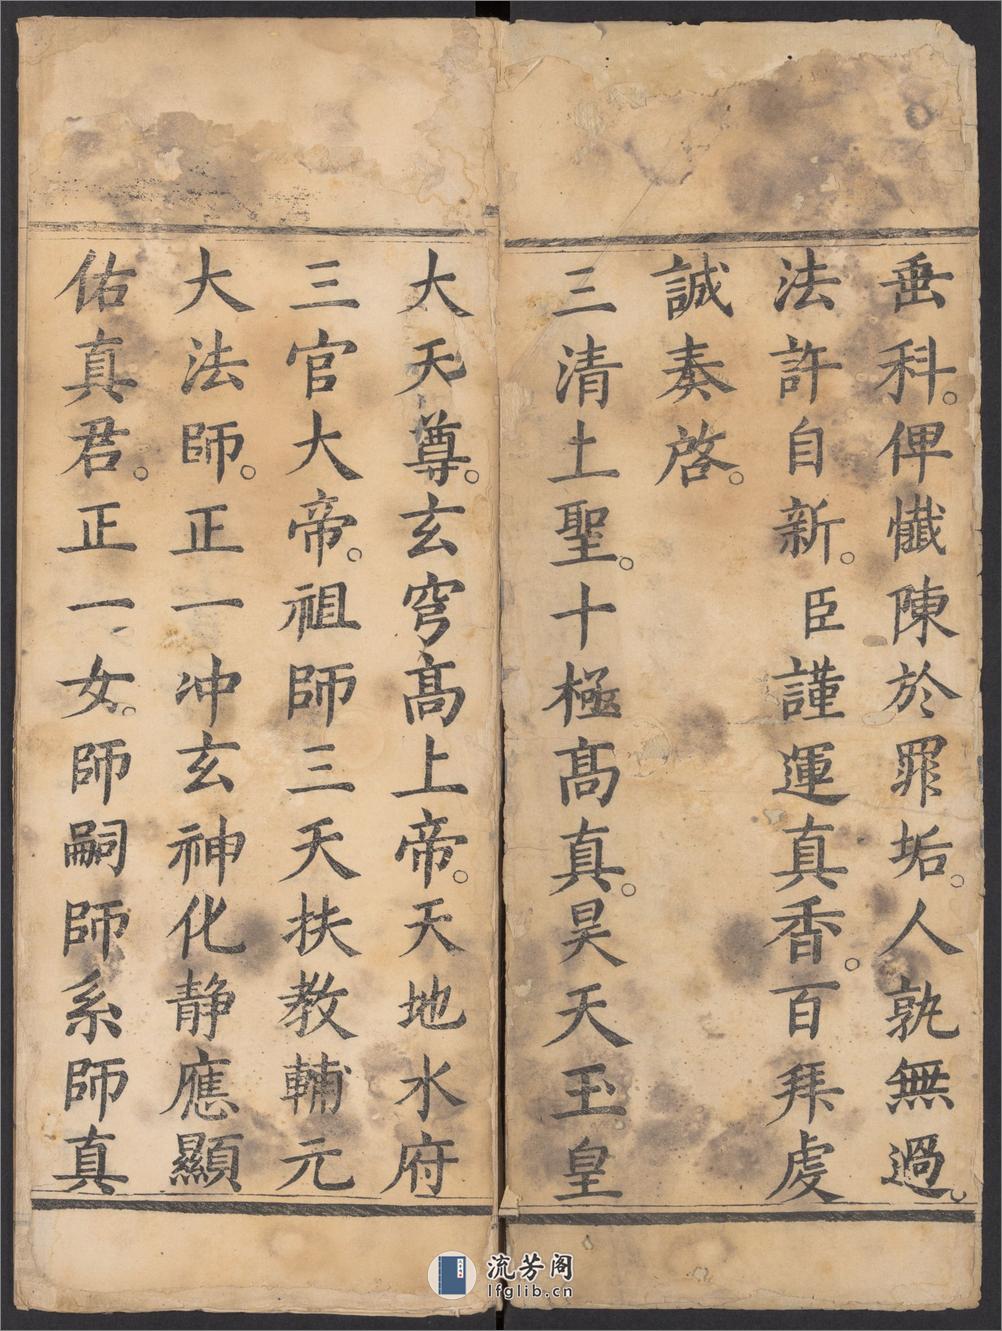 垂科。俾懴陳於罪垢。人孰無過。
法許自新。臣謹運真香。百拜虔
誠奏啓。
三清上聖。十極髙真。昊天玉皇
大天尊。玄穹髙上帝。天地水府
三官大帝。祖師三天扶教輔元
大法師。正一冲玄神化静應顯
佑真君。正一女。師嗣師系師真
流芳阁
lfglib.cn